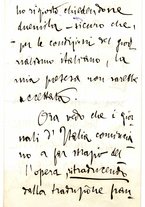 ho risposto chiedendone
duemila – sicuro che,
per le condizioni del gior
nalismo italiano, la
mia pretesa non sarebbe
accettata.
Ora vedo che i gior
nali d'Italia comincia
no a far strazio del
l'opera, straducendo
dalla traduzione fran